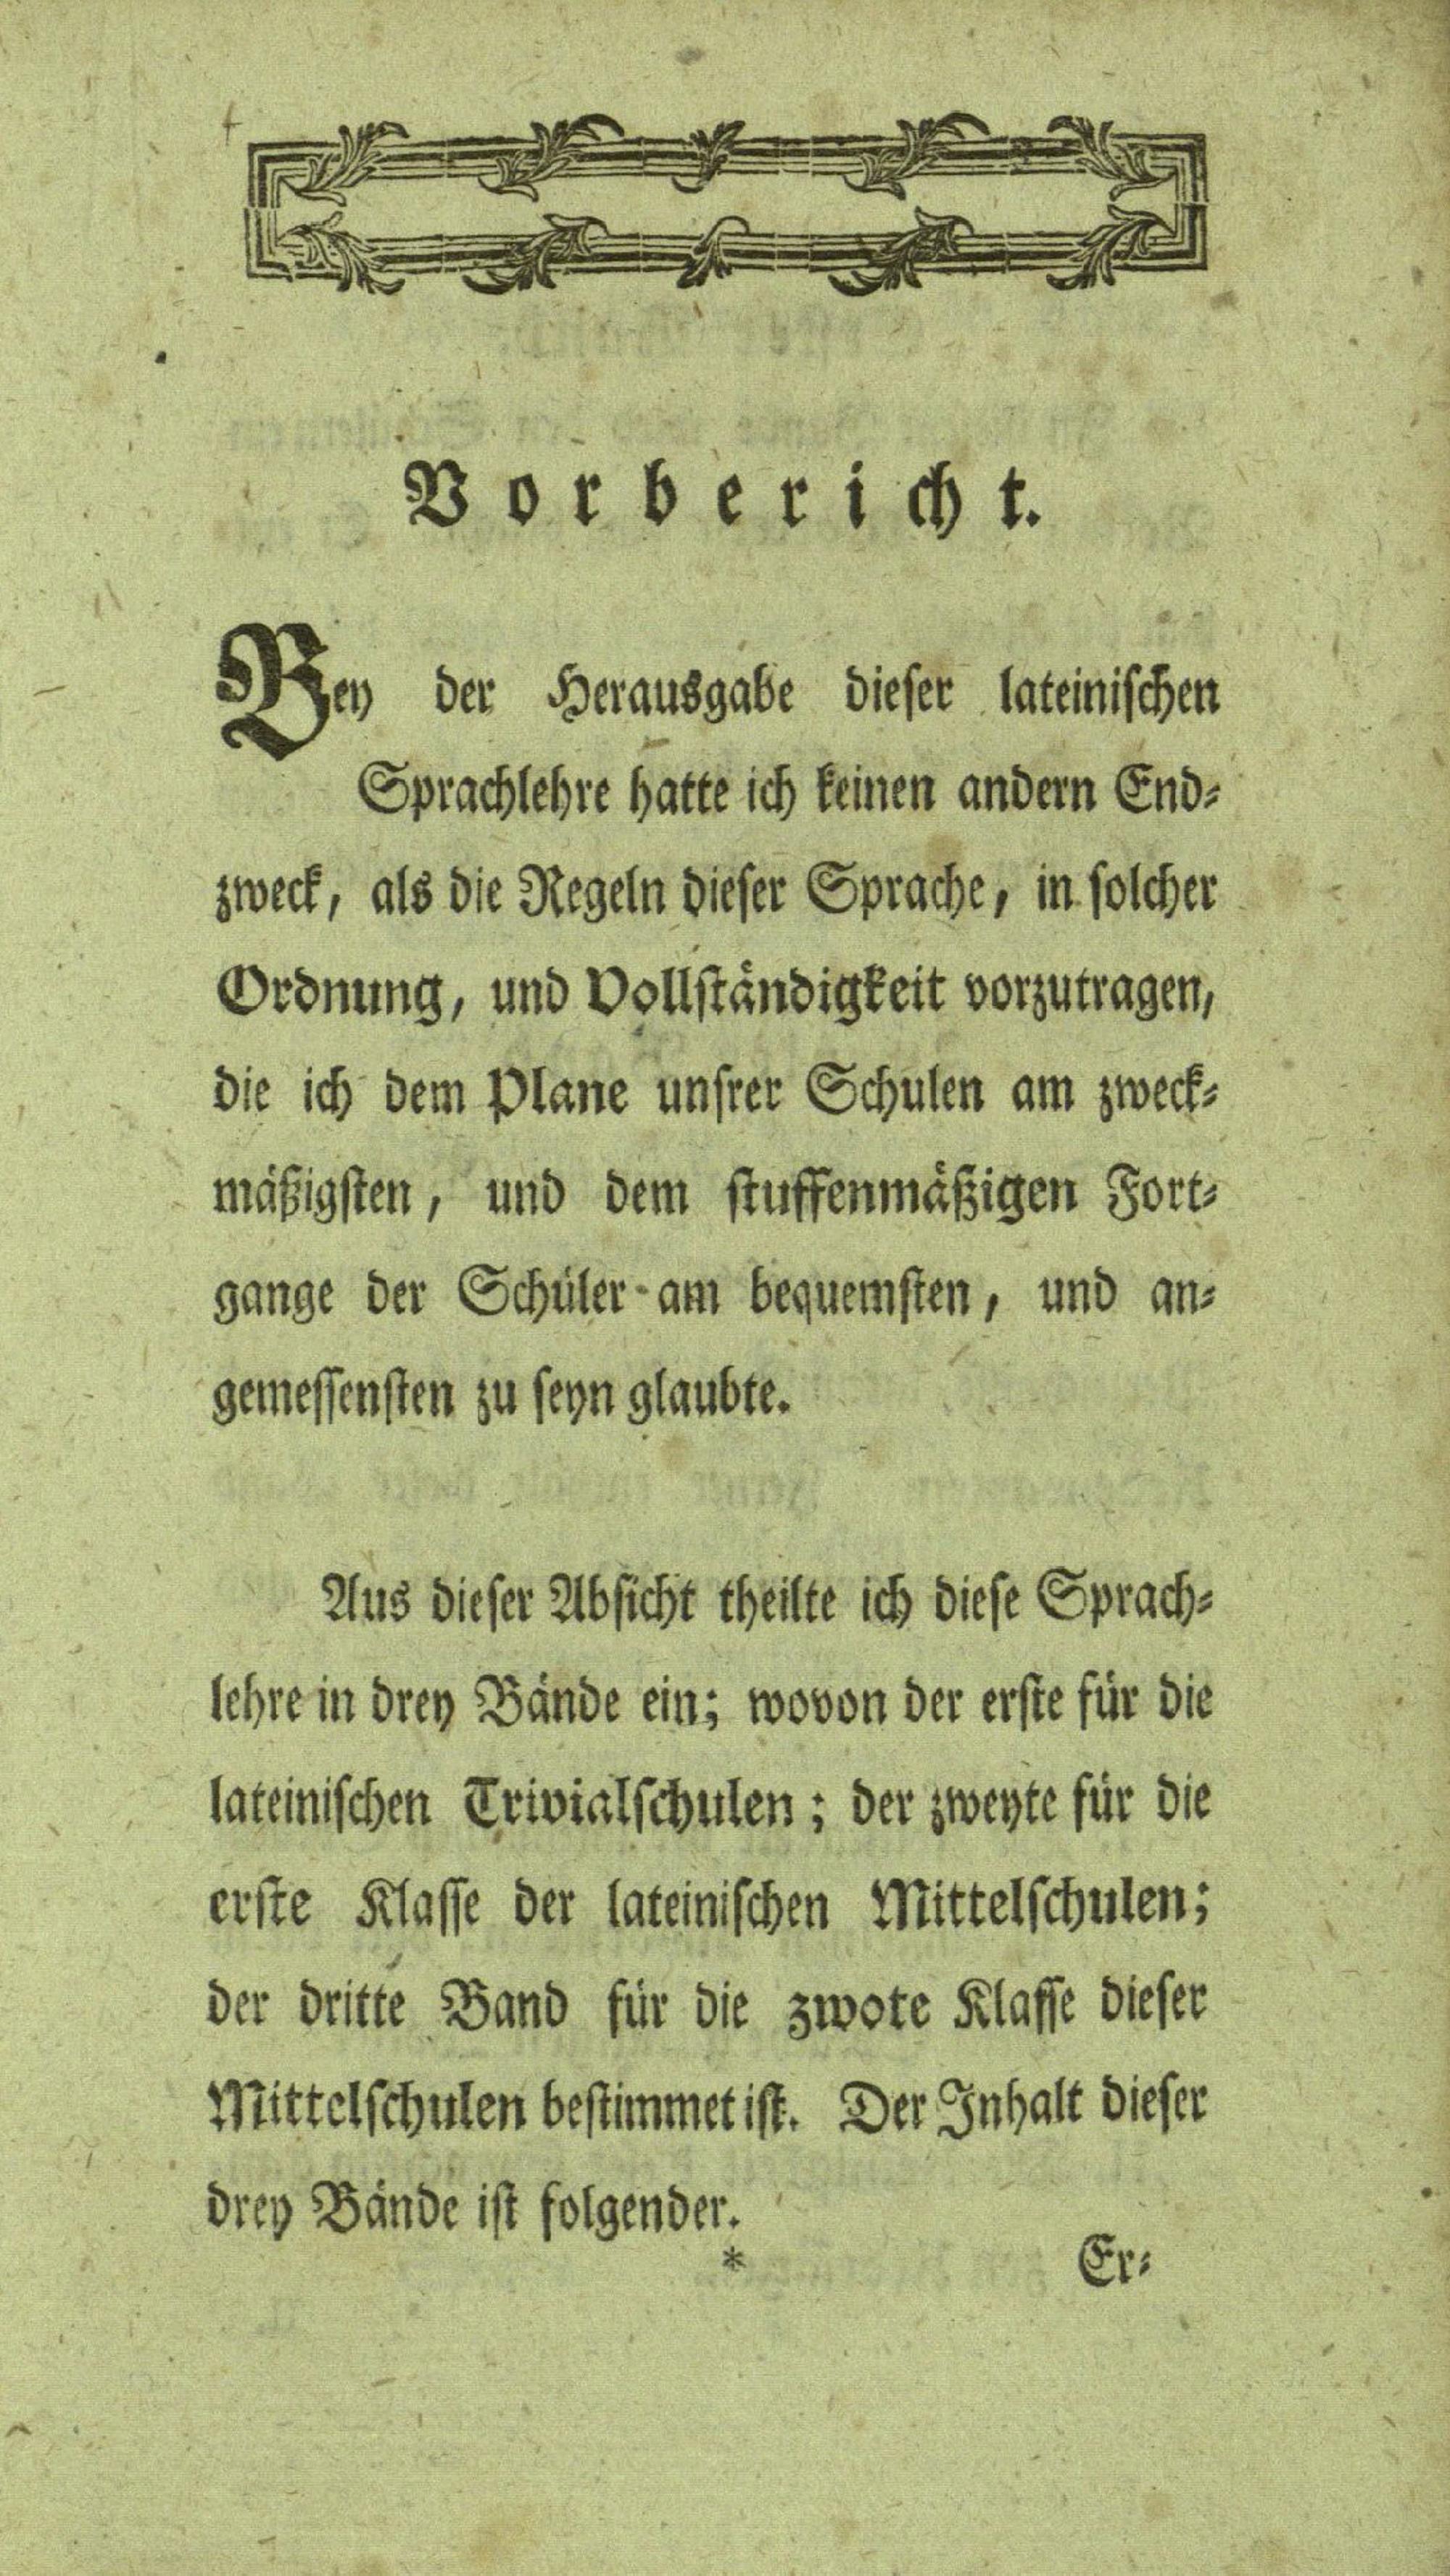 Vorbericht.
Bey der Herausgabe dieser lateinischen
Sprachlehre hatte ich keinen andern End⸗
zweck, als die Regeln dieser Sprache, in solcher
Ordnung, und Vollständigkeit vorzutragen,
die ich dem Plane unsrer Schulen am zweck⸗
mäßigsten, und dem stuffenmäßigen Fort⸗
gange der Schüler am bequemsten, und an⸗
gemessensten zu seyn glaubte.
Aus dieser Absicht theilte ich diese Sprach⸗
lehre in drey Bände ein; wovon der erste für die
lateinischen Trivialschulen; der zweyte für die
erste Klasse der lateinischen Mittelschulen;
der dritte Band für die zwote Klasse dieser
Mittelschulen bestimmet ist. Der Inhalt dieser
drey Bände ist folgender.
* Er⸗